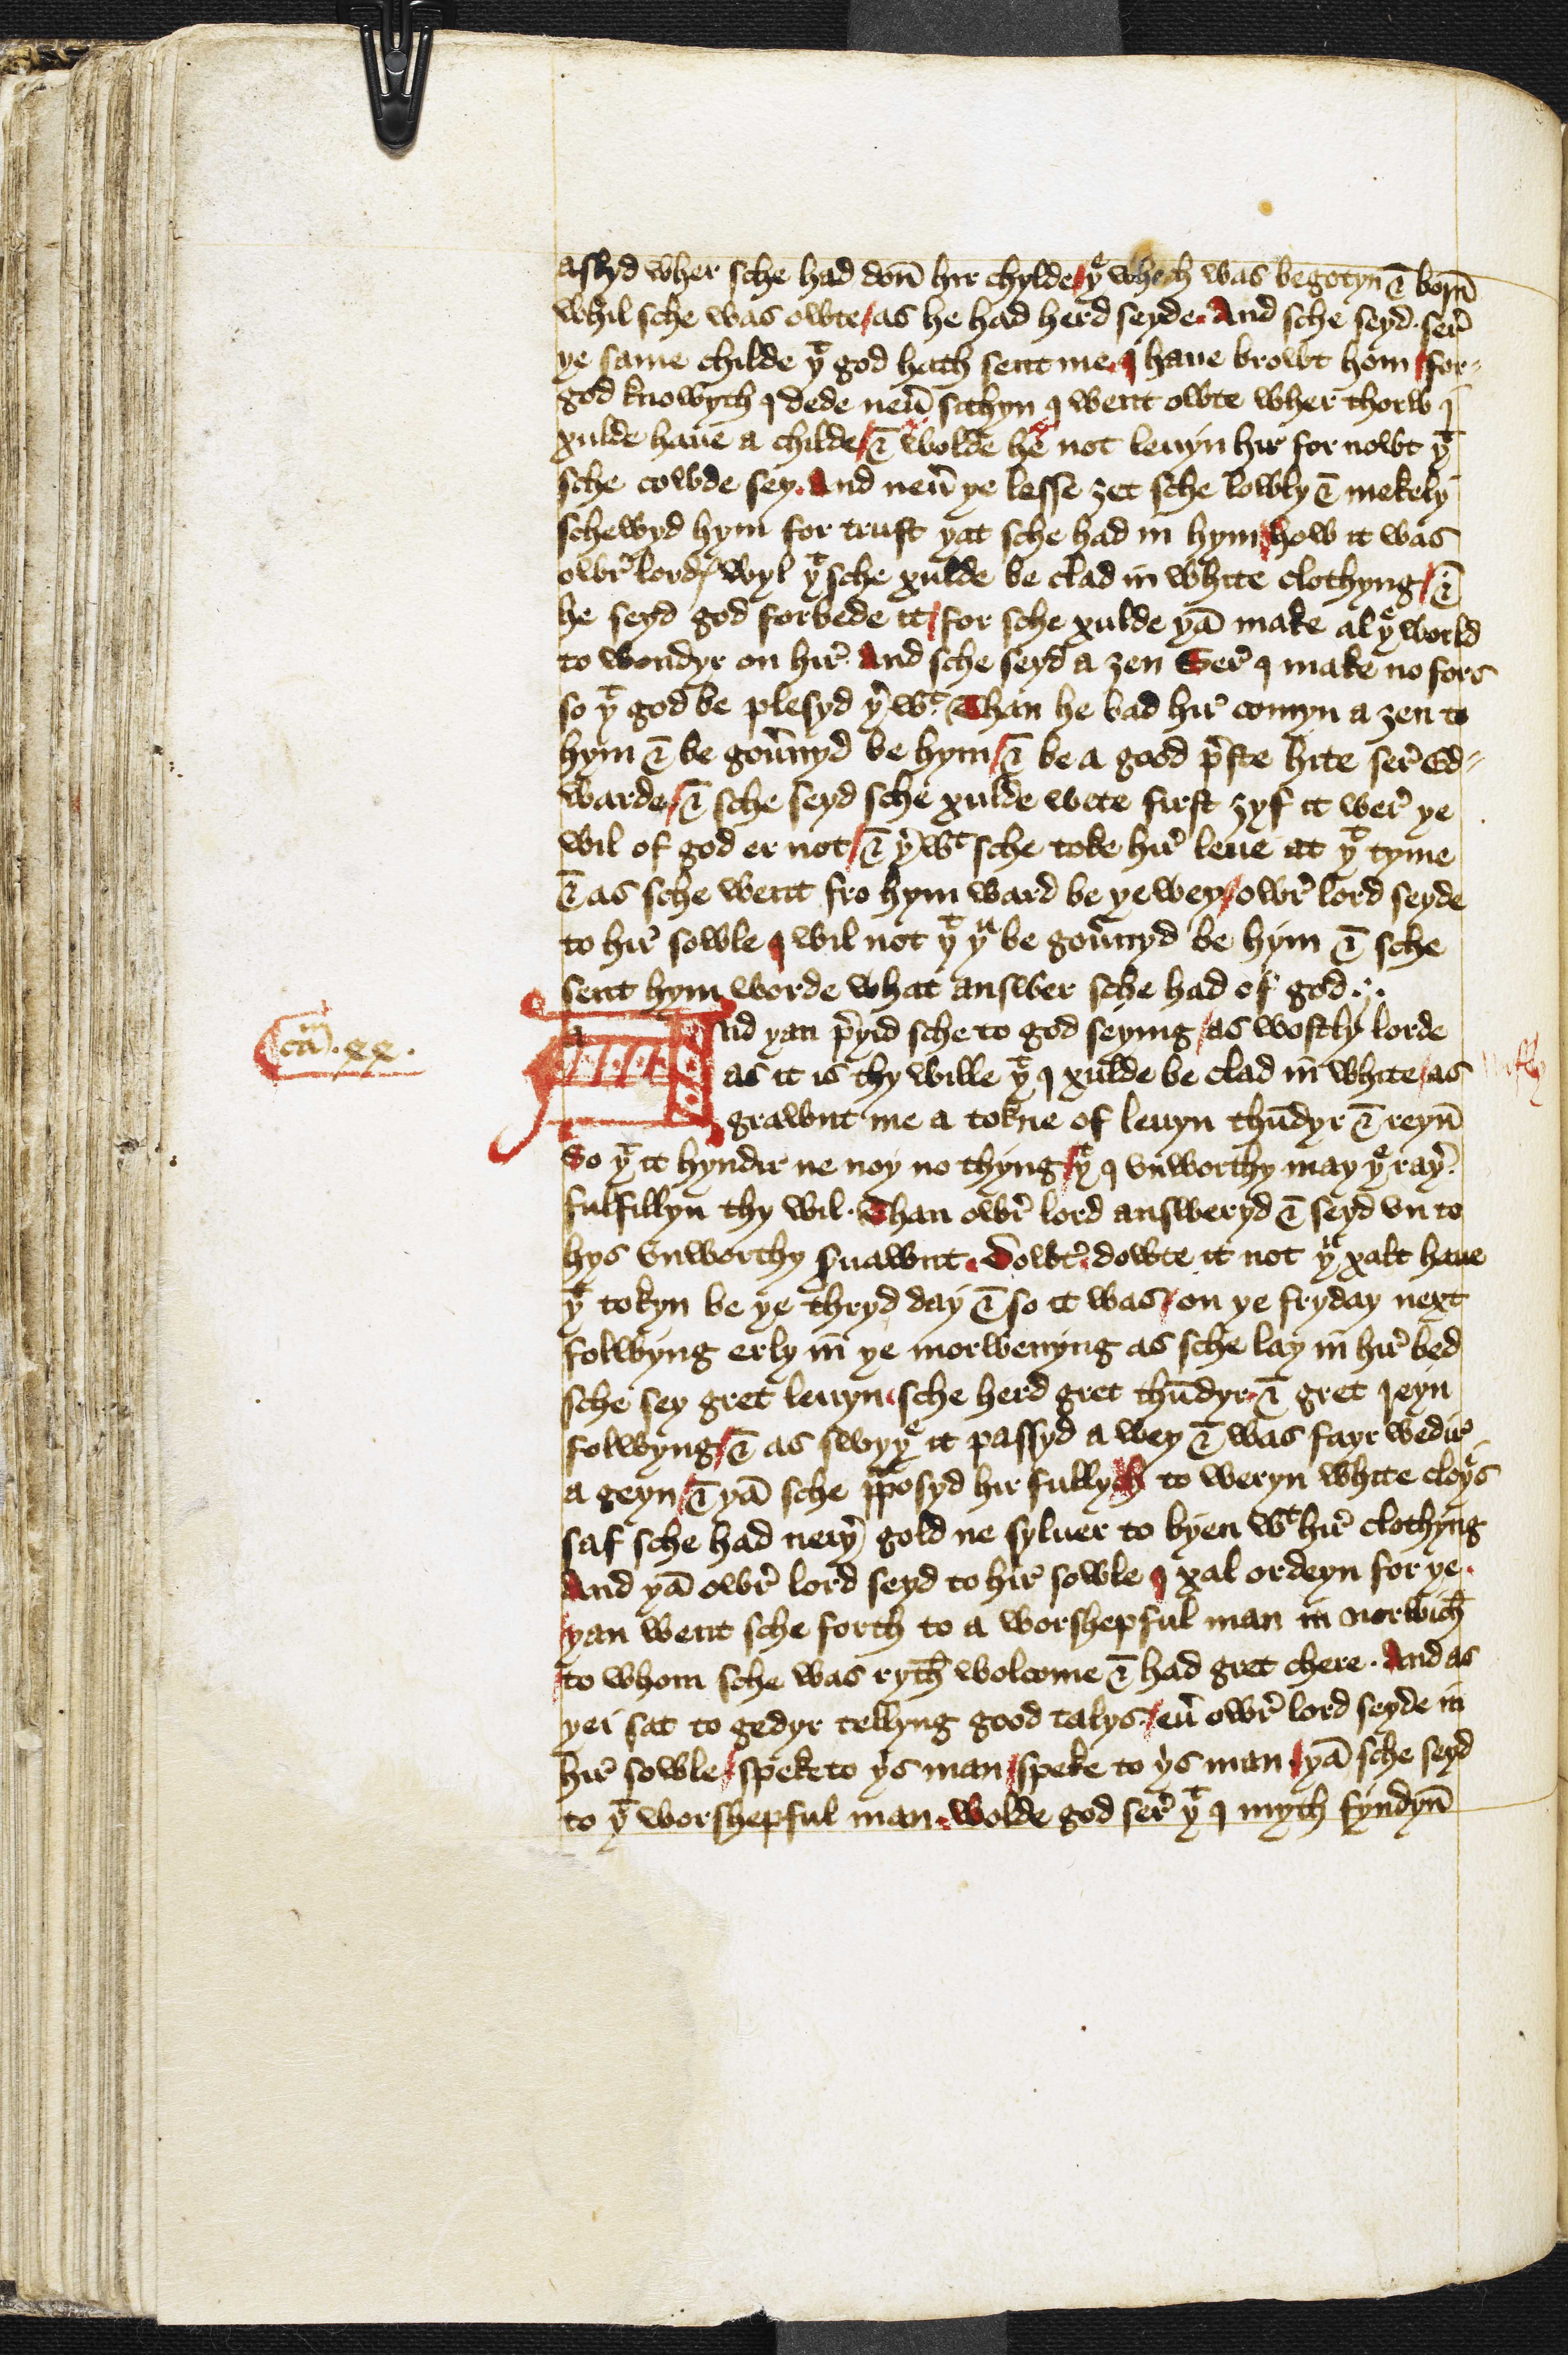 askyd wher sche had don̄ hir chylde / yͤ whech was begotyn & born̄
whil sche was owte / as he had herd seyde. And sche seyd. ser̉
ye same childe yͭ god hath sent me. I haue browt hom / for-
god knowyth I dede neủ sithyn I went owte wher thorw I
xulde haue a childe / & wolde he not leuyn hir for nowt yͭ
sche cowde sey. And neủ ye lesse zet sche lowly & mekely
schewyd hym for trust yat sche had in hym / how it was
owr̉ lordys wyl yͭ sche xulde be clad in white clothyng / &
he seyd god forbede it / for sche xulde yā make al yͤ world
to wondyr on hir̉. And sche seyd a zen Ser̉ I make no fors
so yͭ god be plesyd ỷ wͭ. Than he bad hir̉ comyn a zen to
hym & be goủnyd be hym / & be a good p̉ste hite ser̉ Ed-
warde / & sche seyd sche xulde wete first zyf it wer̉ ye
wil of god er not / & ỷ wͭ sche toke hir̉ leue at yͭ tyme
& as sche went fro hym ward be ye wey / owr̉ lord seyde
to hir̉ sowle I wil not yͭ yͧ be goủnyd be hym & sche
sent hym worde what answer sche had of god.
cām .xx.
And yan p̉yid sche to god seying / as wostly lorde
as it is thy wille yͭ I xulde be clad in white / as
grawnt me a tokne of leuyn thūdyr & reyn̄
So yͭ it hyndir ne noy no thyng / yͭ I vnworthy may yͤ raỷ
fulfillyn thy wil. Than owr̉ lord answeryd & seyd vn to
hys vnworthy s̉uawnt. Dowt̉. dowte it not yͧ xalt haue
yͭ tokyn be ye thryd day & so it was / on ye fryday next
folwyng erly in ye morwenyng as sche lay in hir̉ bed
sche sey gret leuyn. sche herd gret thūdyr & gret reyn
folwyng / & as swyyͤ it passyd a wey & was fayr wedir̉
a geyn / & yā sche p̉posyd hir fullych to weryn white cloyͤs
saf sche had neiỷ gold ne syluer to byen wͭ hir̉ clothyng
And yā owr̉ lord seyd to hir̉ sowle I xal ordeyn for ye.
yan went sche forth to a worshepful man in norwich
to whom sche was ryth wolcome & had gret chere. And as
yei sat to gedyr tellyng good talys / eủ owr̉ lord seyde in
hir̉ sowle / speke to yͥs man / speke to yͥs man / yā sche seyd
to yͭ worshepful man. wolde god ser̉ yͭ I myth fyndyn̄